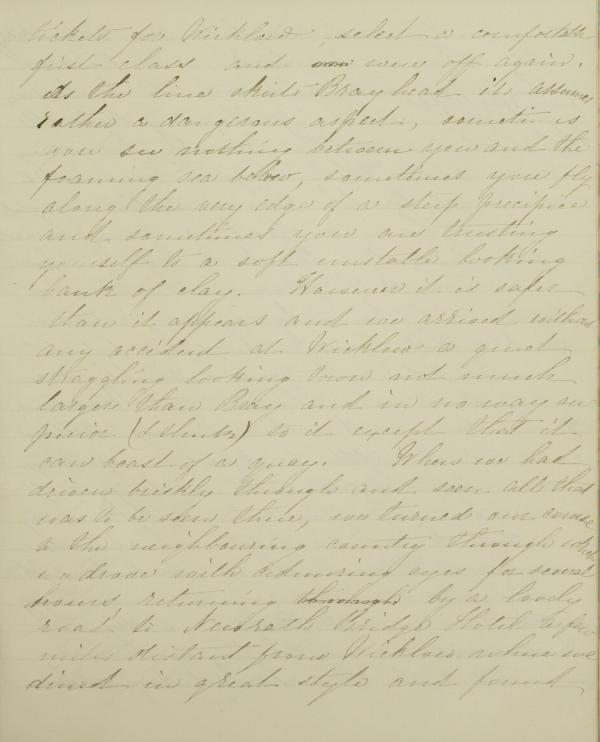 tickets for Wicklow, select a comfortable
first class and soon were off again.
As the line skirts Brayhead it assumes
rather a dangerous aspect, sometimes
you see nothing between you and the
foaming sea below, sometimes you fly
along the very edge of a steep precipice
and sometimes you are trusting
yourself to a soft unstable looking
bank of clay. However it is safer
than it appears and we arrived without
any accident at Wicklow a quiet
straggling looking town not much
larger than Bray and in no way su
perior (I think) to it except that it
can boast of a quay. When we had
driven briskly through and seen all that
was to be seen there, we turned our course
to the neighbouring country through which
we drove with admiring eyes for several
hours, returning by a lovely
road to Newrath Bridge Hotel a few
miles distant from Wicklow where we
dined in great style and found